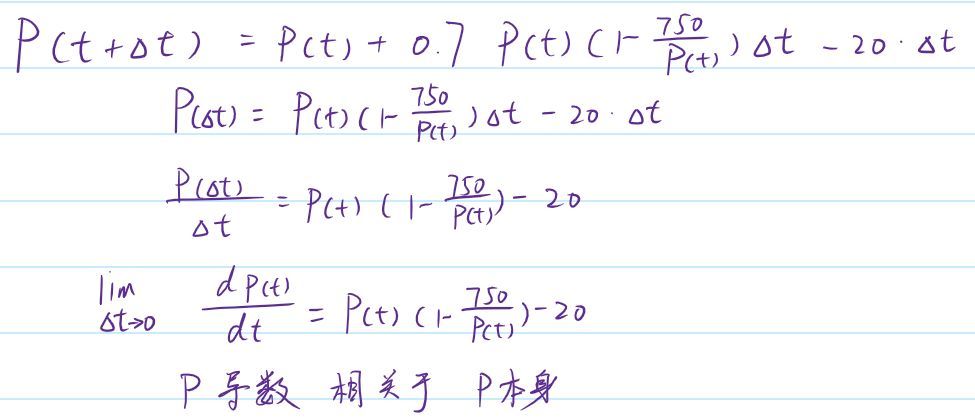 P(t+Δt) = P(t) + 0.7 P(t) (1-750/P(t)) Δt - 20·Δt
P(Δt) = P(t) (1-750/P(t)) Δt - 20·Δt
P(Δt)/Δt = P(t) (1-750/P(t)) - 20
lim Δt→0 dP(t)/dt = P(t) (1-750/P(t)) - 20
P 导数 相关于 P本身